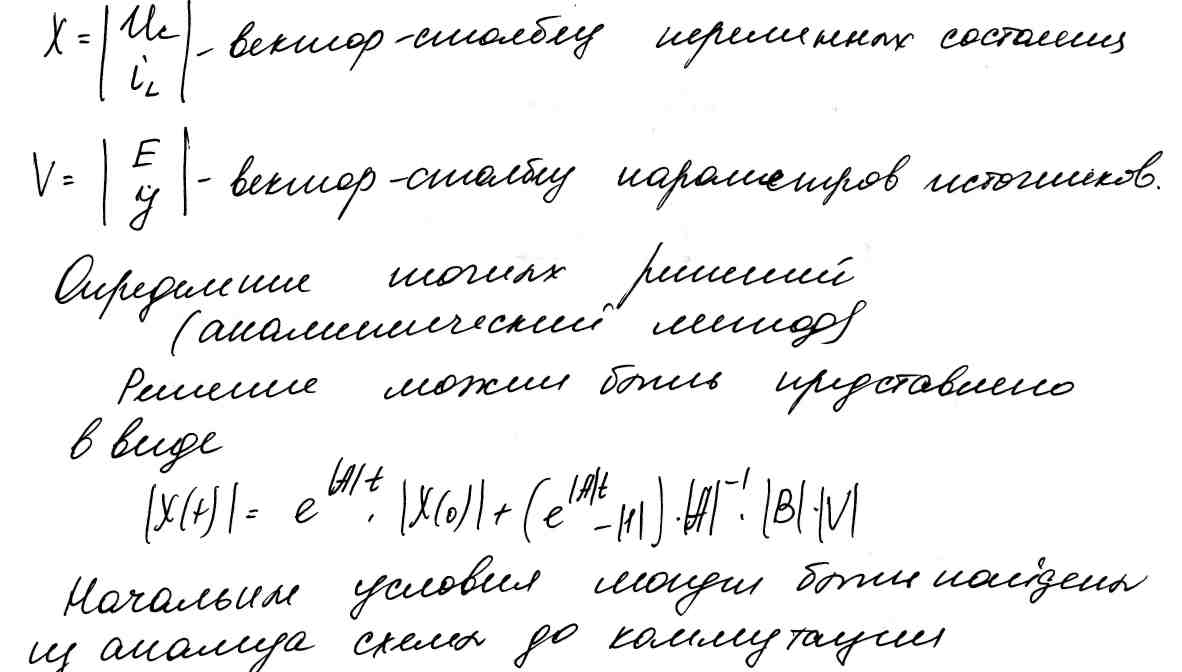 X = | Uc iL | - вектор-столбец переменных состояния
V = | E y | - вектор-столбец параметров источников.
Определение точных решений
(аналитический метод)
Решение может быть представлено
в виде
|X(t)| = e^{|A|t} · |X(0)| + (e^{|A|t} - |1|) · |A|^{-1} · |B| · |V|
Начальные условия могут быть найдены
из анализа схемы до коммутации